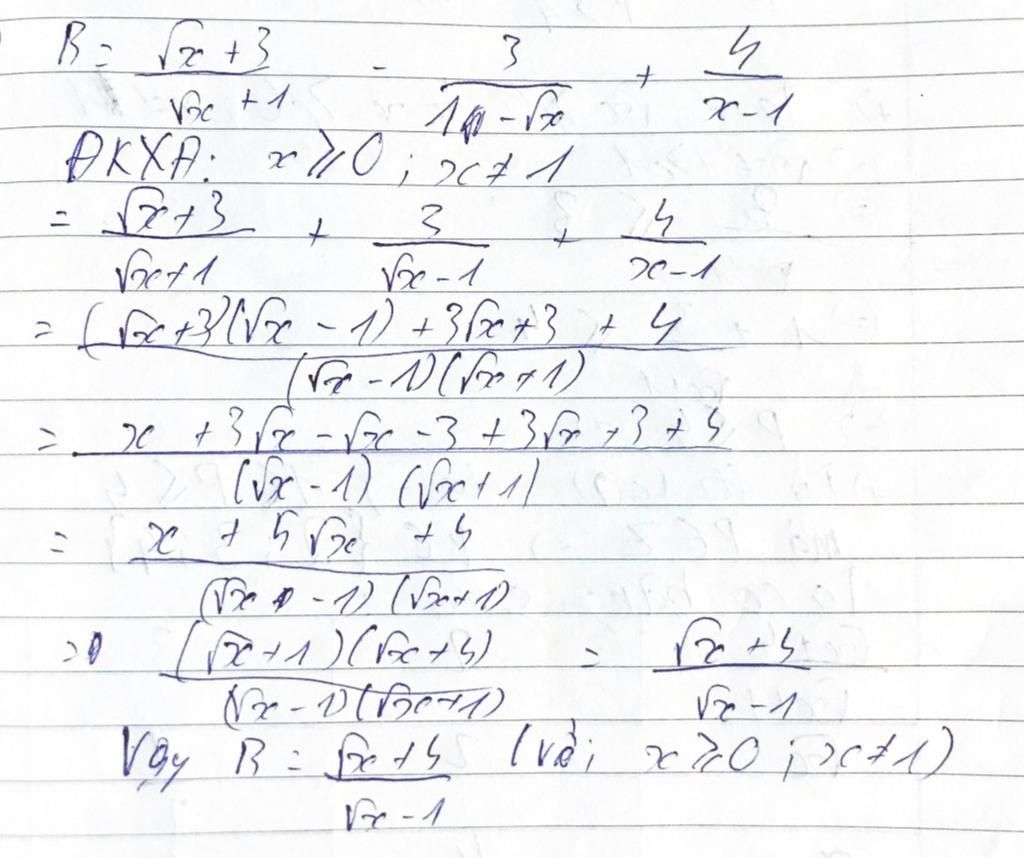 B = \frac{\sqrt{x}+3}{\sqrt{x}+1} - \frac{3}{1-\sqrt{x}} + \frac{4}{x-1}
ĐKXĐ: x ≥ 0 ; x ≠ 1
= \frac{\sqrt{x}+3}{\sqrt{x}+1} + \frac{3}{\sqrt{x}-1} + \frac{4}{x-1}
= \frac{(\sqrt{x}+3)(\sqrt{x}-1)+3\sqrt{x}+3+4}{(\sqrt{x}-1)(\sqrt{x}+1)}
= \frac{x+3\sqrt{x}-\sqrt{x}-3+3\sqrt{x}+3+4}{(\sqrt{x}-1)(\sqrt{x}+1)}
= \frac{x+5\sqrt{x}+4}{(\sqrt{x}-1)(\sqrt{x}+1)}
= \frac{(\sqrt{x}+1)(\sqrt{x}+4)}{(\sqrt{x}-1)(\sqrt{x}+1)} = \frac{\sqrt{x}+4}{\sqrt{x}-1}
Vậy B = \frac{\sqrt{x}+4}{\sqrt{x}-1} (với x ≥ 0 ; x ≠ 1)